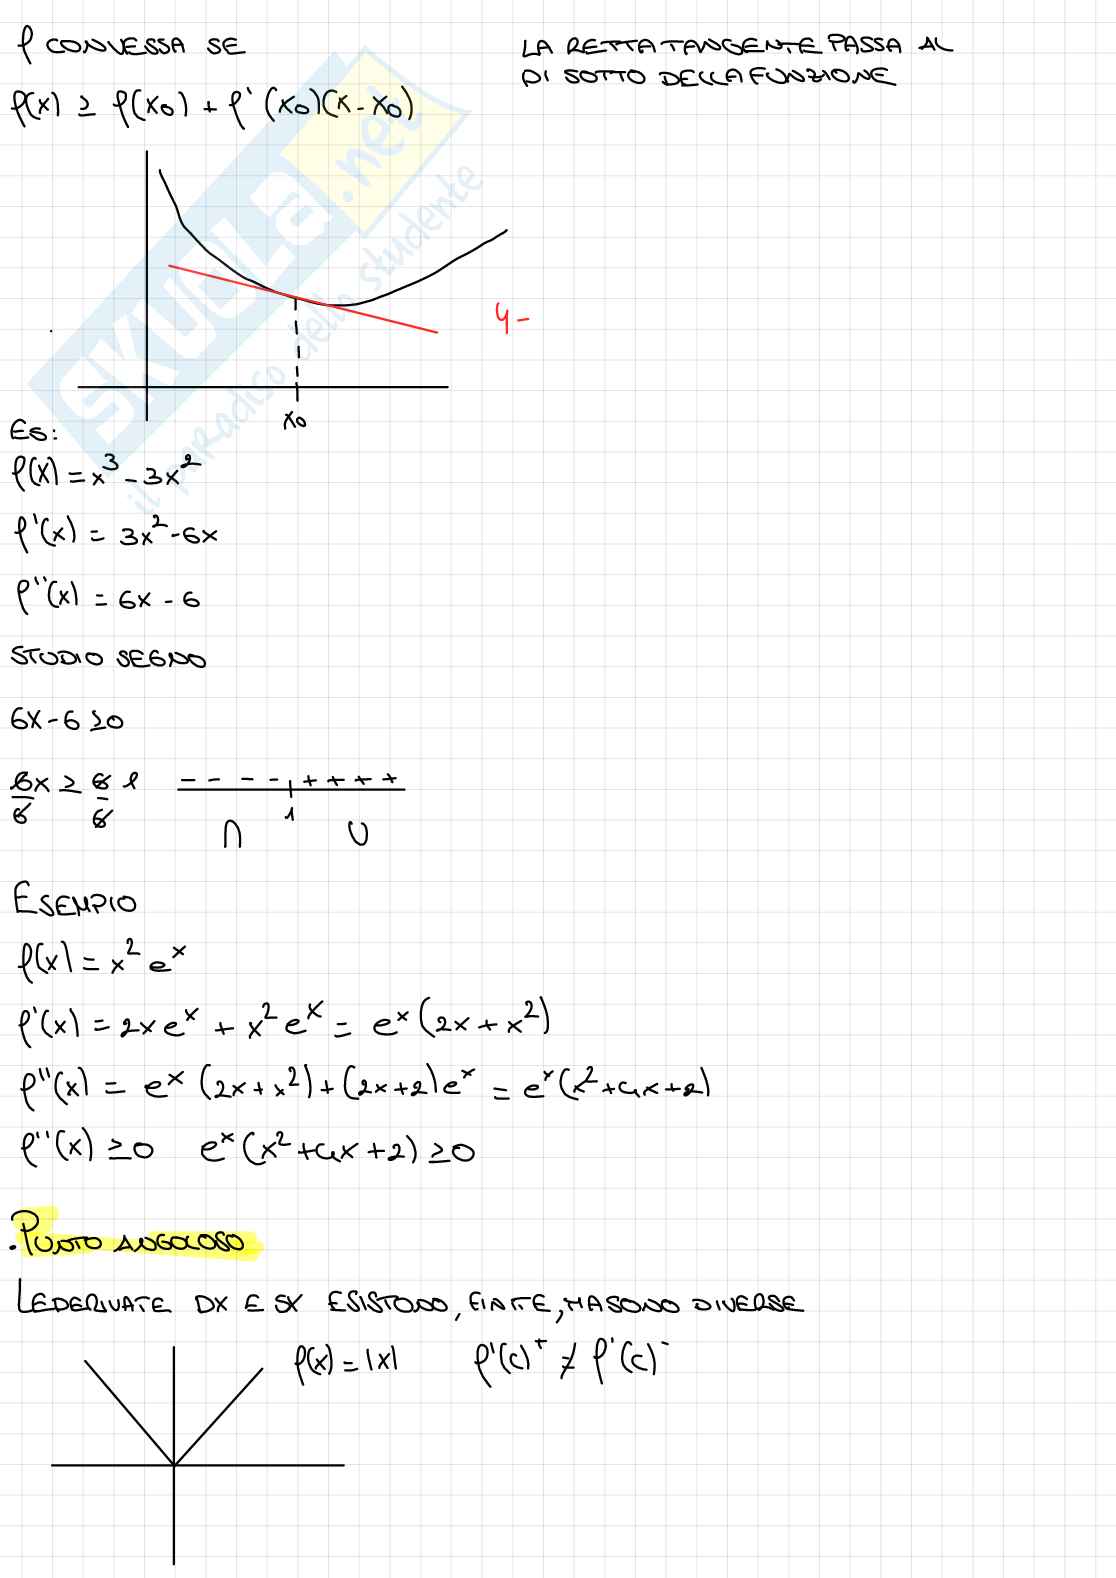 f CONVESSA SE
LA RETTA TANGENTE PASSA AL
DI SOTTO DELLA FUNZIONE
f(x) ≥ f(x₀) + f'(x₀)(x - x₀)
SKUOLA.net
il paradiso dello studente
y -
x₀
ES:
f(x) = x³ - 3x²
f'(x) = 3x² - 6x
f''(x) = 6x - 6
STUDIO SEGNO
6x - 6 ≥ 0
6x/6 ≥ 6/6 1
- - - - + + + +
1
∩ ∪
ESEMPIO
f(x) = x² eˣ
f'(x) = 2x eˣ + x² eˣ = eˣ (2x + x²)
f''(x) = eˣ (2x + x²) + (2x + 2) eˣ = eˣ (x² + 4x + 2)
f''(x) ≥ 0 eˣ (x² + 4x + 2) ≥ 0
. PUNTO ANGOLOSO
LE DERIVATE DX E SX ESISTONO, FINITE, MA SONO DIVERSE
f(x) = |x| f'(c)⁺ ≠ f'(c)⁻